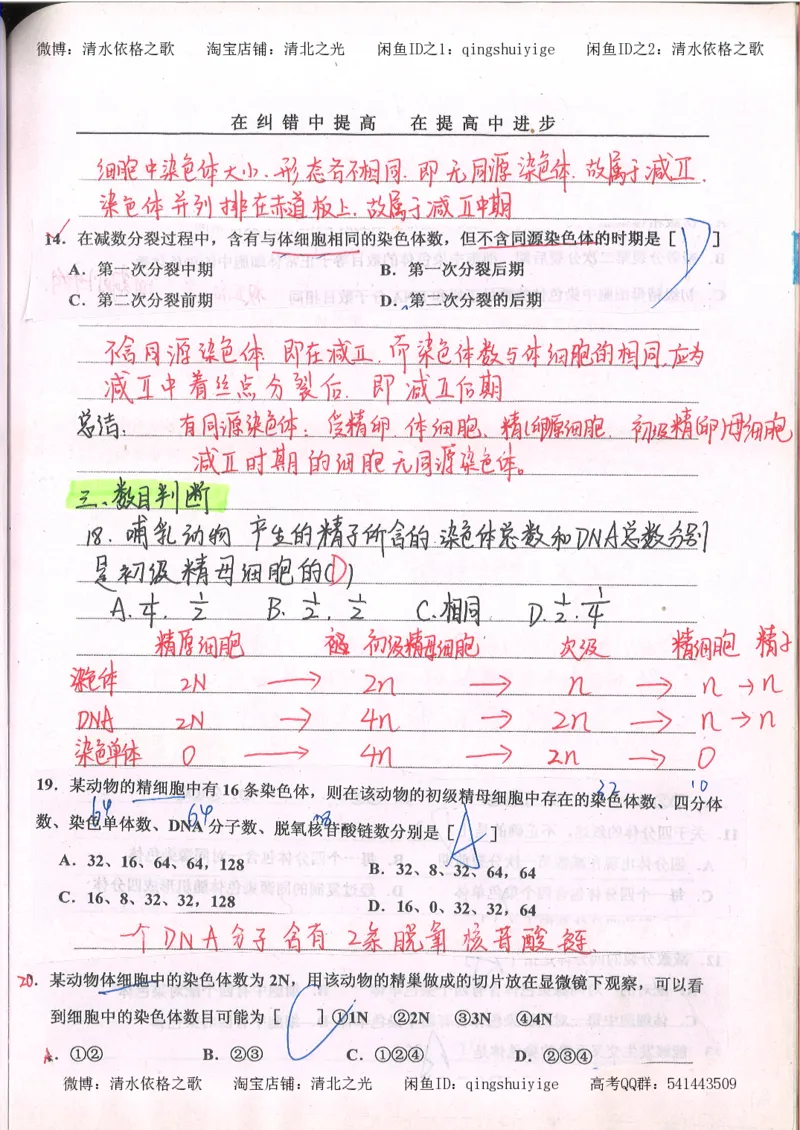 微博：清水依格之歌 淘宝店铺：清北之光 闲鱼ID之1：qingshuiyige 闲鱼ID之2：清水依格之歌
在纠错中提高 在提高中进步
细胞中染色体大小、形态各不相同，即无同源染色体，故属于减Ⅱ，
染色体并列排在赤道板上，故属于减Ⅱ中期
14．在减数分裂过程中，含有与体细胞相同的染色体数，但不含同源染色体的时期是［ D ］
A．第一次分裂中期 B．第一次分裂后期
C．第二次分裂前期 D．第二次分裂的后期
不含同源染色体，即在减Ⅱ，而染色体数与体细胞的相同，应为
减Ⅱ中着丝点分裂后，即减Ⅱ后期
总结： 有同源染色体：受精卵、体细胞、精(卵)原细胞、初级精(卵)母细胞
减Ⅱ时期的细胞无同源染色体。
三、数目判断
18. 哺乳动物产生的精子所含的染色体总数和DNA总数分别
是初级精母细胞的(D)
A. 1/4, 1/2 B. 1/2, 1/2 C. 相同 D. 1/2, 1/4
精原细胞 初级精母细胞 次级 精细胞 精子
染色体 2N → 2n → n → n → n
DNA 2N → 4n → 2n → n → n
染色单体 0 → 4n → 2n → 0
19．某动物的精细胞中有 16 条染色体，则在该动物的初级精母细胞中存在的染色体数、四分体
32 10
数、染色单体数、DNA 分子数、脱氧核苷酸链数分别是［ A ］
64 64
A．32、16、64、64，128 B．32、8、32、64，64
C．16、8、32、32，128 D．16、0、32、32，64
一个DNA分子含有2条脱氧核苷酸链
20．某动物体细胞中的染色体数为 2N，用该动物的精巢做成的切片放在显微镜下观察，可以看
到细胞中的染色体数目可能为［ C ］①1N ②2N ③3N ④4N
A．①② B．②③ C．①②④ D．②③④
微博：清水依格之歌 淘宝店铺：清北之光 闲鱼ID：qingshuiyige 高考QQ群：541443509